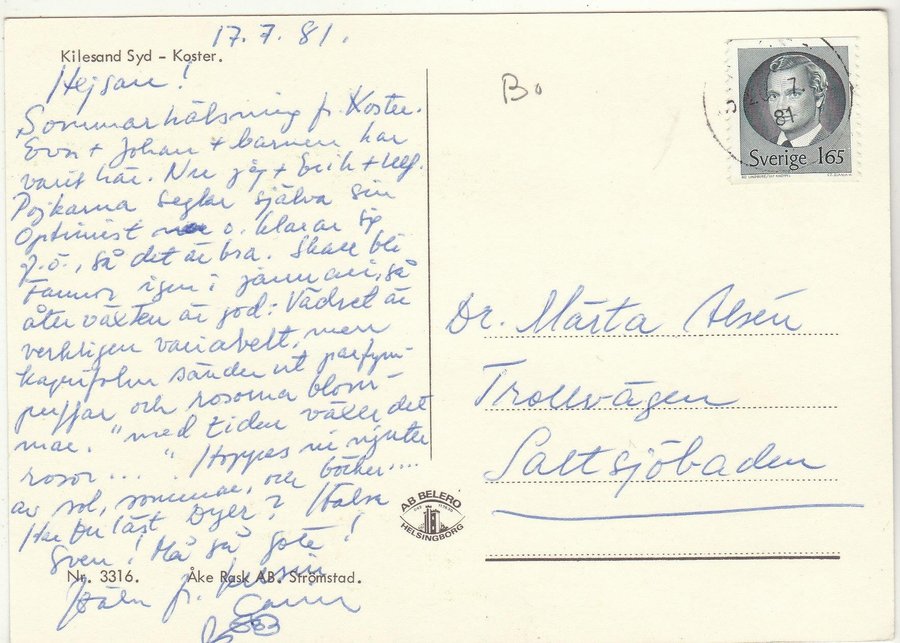 17.7.81.
Kilesand Syd – Koster.
Hejsan!
Sommarhälsning fr. Koster.
Eva + Johan + barnen har
varit här. Nu jag + Erik + Ulf.
Pojkarna seglar själva sin
Optimist o. klarar sig
g.ö., så det är bra. Skall bli
igen i januari, så
återväxten är god: Vädret är
verkligen variabelt, men
kaprifolen sänder ut parfym-
puffar och rosorna blom-
mar. "med tiden växer det
rosor.... " Hoppas ni njuter
av sol, sommar, och böcker....
Har Du läst Dyer? Hälsa
Sven! Må så gott!
Nr. 3316. Åke Rask AB. Strömstad.
fr.
Bo
Sverige 165
81
AB BELERO
HELSINGBORG
Dr. Märta Alsén
Trollvägen
Saltsjöbaden